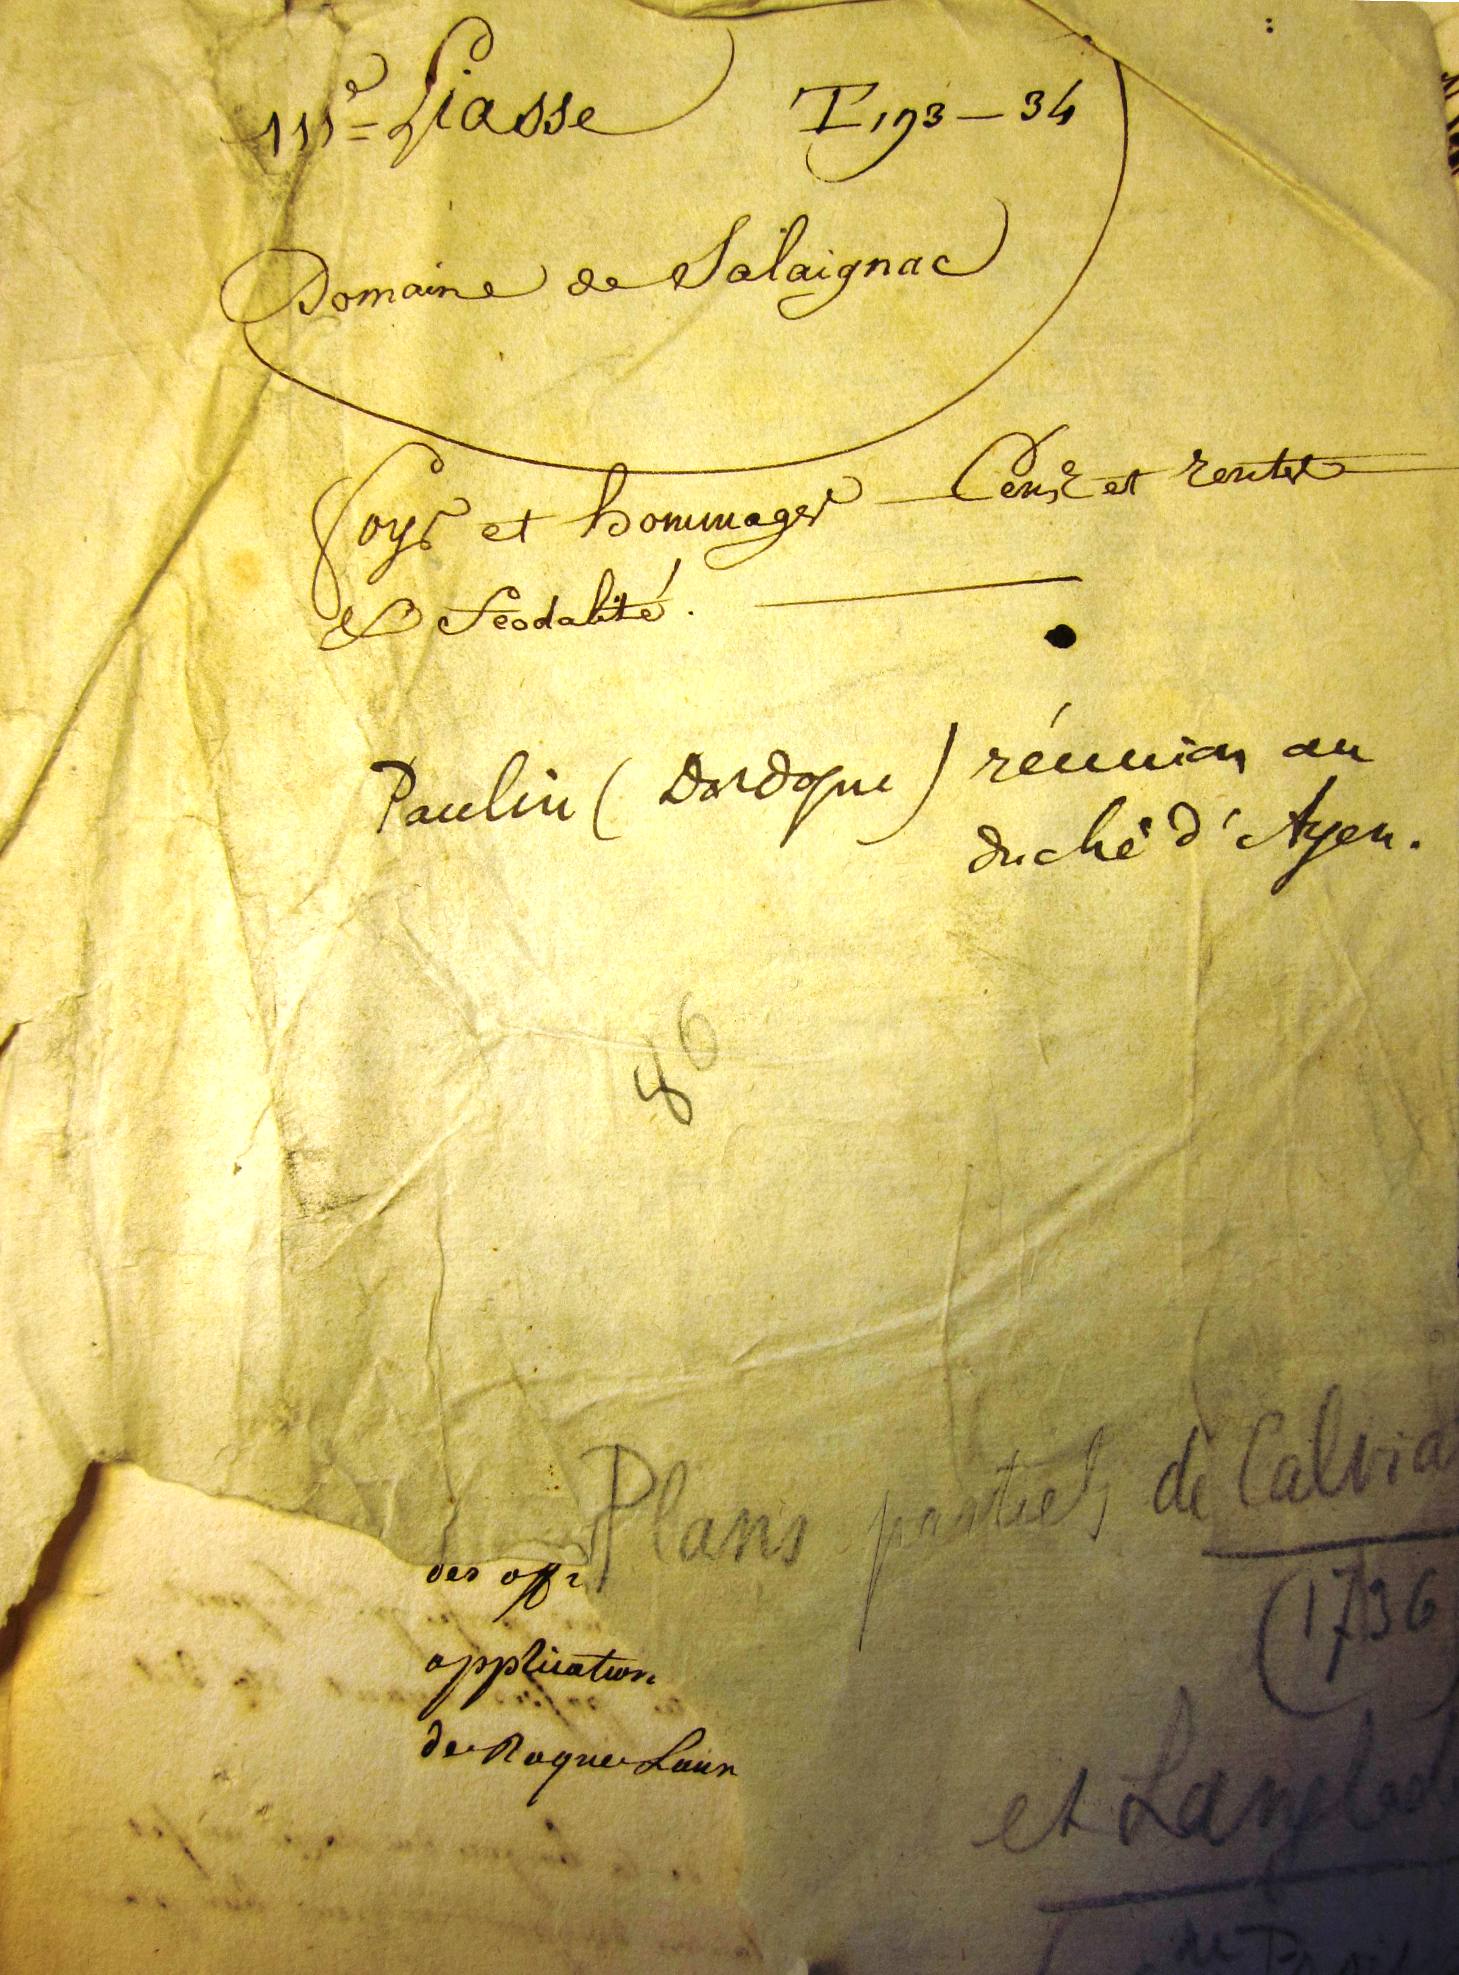 111e Liasse T 193 - 34
Domaine de Salaignac
Foys et hommages — Cens et rentes
et Feodalité.
Paulin (Dordogne) réunion au
duché d'Ayen.
86
Plans partiels de Calvia
(1736
et Langlade
des off
application
de Roque Laur